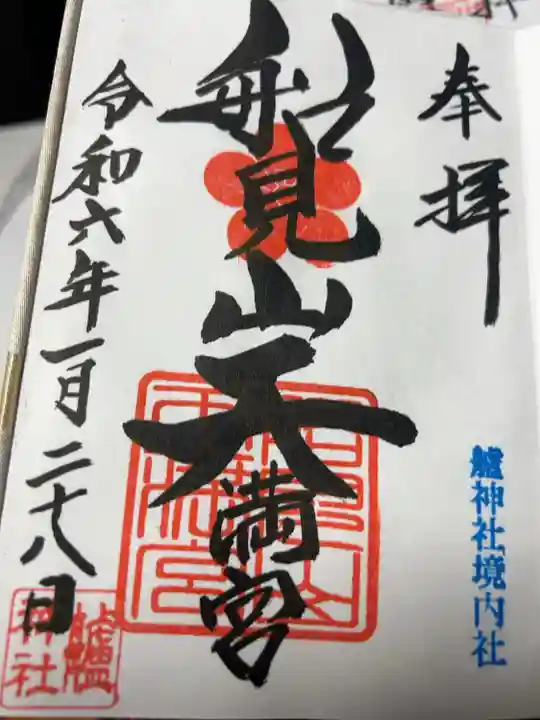 奉拝
艫神社境内社
船見山天満宮
令和六年一月二十八日
艫神社